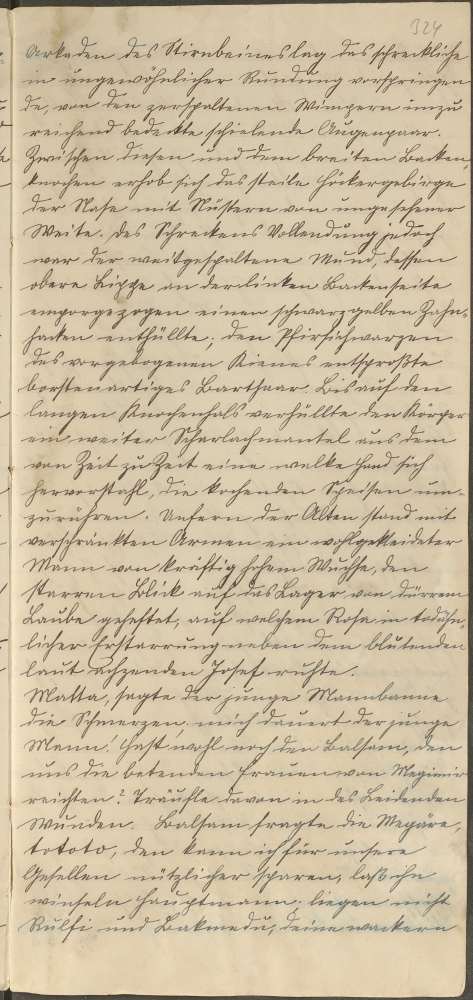 324
Arkaden des Stirnbeines lag das schreckliche
in ungewöhnlicher Rundung vorspringen
de, von den zerspaltenen Wimpern unzu
reichend bedeckte schielende Augenpaar.
Zwischen diesen und dem breiten Backen,
knochen erhob sich das steile Höckergebirge
der Nase mit Nüstern von ungesehener
Weite. Des Schreckens Vollendung jedoch
war der weitgespaltene Mund, dessen
obere Lippe an der linken Backenseite
emporgezogen einen schwarzgelben Zahn-
hacken enthüllte; den Pfirsichwarzen
des vorgebogenen Kienes entsproßte
borstenartiges Barthaar. Bis auf den
langen Knochenhals verhüllte den Körper
ein weiter Scharlachmantel aus dem
von Zeit zu Zeit eine welke Hand sich
hervorstahl, die kochenden Speisen um-
zurühren. Unfern der Alten stand mit
verschränkten Armen ein wohlgekleideter
Mann von kräftig hohem Wuchse, den
starren Blick auf das Lager von dürrem
Laube geheftet, auf welchem Rosa in todähn,
licher Erstarrung neben dem blutenden
laut ächzenden Josef ruhte.
Matta, sagte der junge Mann banne
die Schmerzen, mich dauert der junge
Mann! Hast wohl noch den Balsam, den
uns die betenden Frauen von
reichten? Träufle davon in des Leidenden
Wunden. Balsam fragte die Megäre,
tototo, den kann ich für unsere
Gesellen nützlicher sparen, laß ihn
winseln Hauptmann. liegen nicht
Rulfi und deine wackern